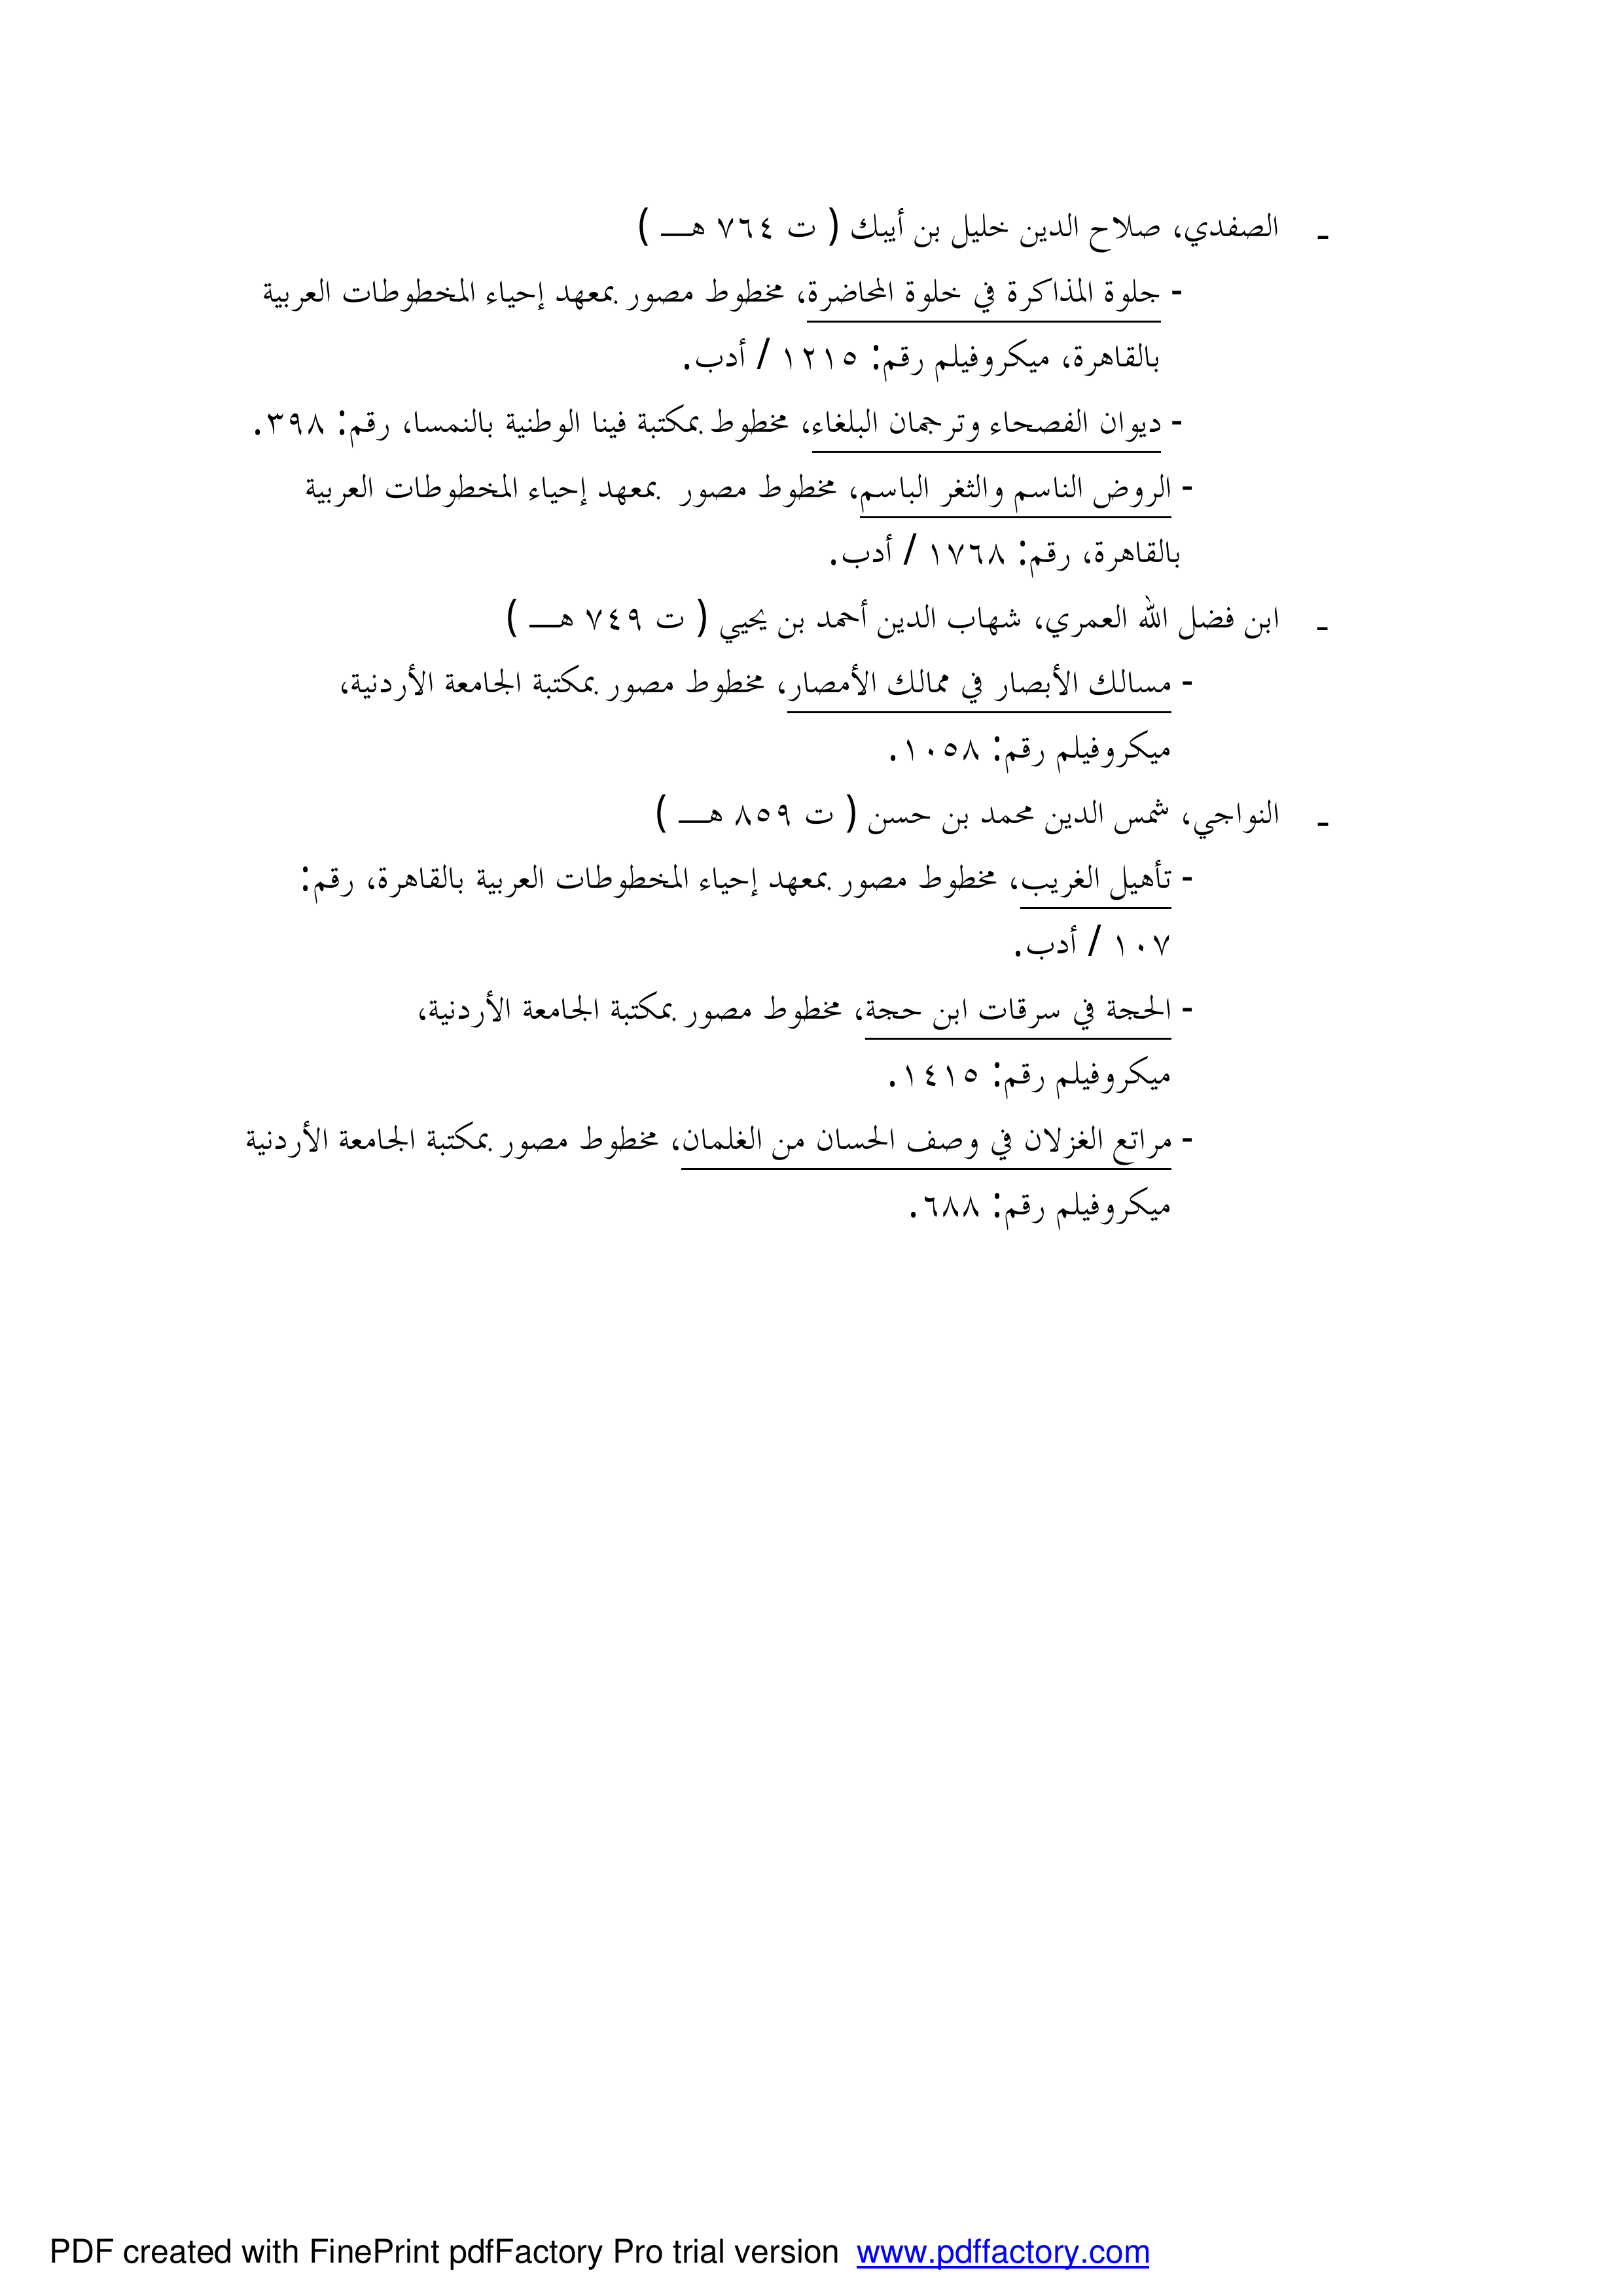 ـ الصفدي، صلاح الدين خليل بن أيبك ( ت ٧٦٤ هـــ )
- جلوة المذاكرة في خلوة المحاضرة، مخطوط مصور بمعهد إحياء المخطوطات العربية
بالقاهرة، ميكروفيلم رقم: ١٢١٥ / أدب.
- ديوان الفصحاء وترجمان البلغاء، مخطوط بمكتبة فينا الوطنية بالنمسا، رقم: ٣٩٨.
- الروض الناسم والثغر الباسم، مخطوط مصور بمعهد إحياء المخطوطات العربية
بالقاهرة، رقم: ١٧٦٨ / أدب.
ـ ابن فضل الله العمري، شهاب الدين أحمد بن يحيي ( ت ٧٤٩ هـــ )
- مسالك الأبصار في ممالك الأمصار، مخطوط مصور بمكتبة الجامعة الأردنية،
ميكروفيلم رقم: ١٠٥٨.
ـ النواجي، شمس الدين محمد بن حسن ( ت ٨٥٩ هـــ )
- تأهيل الغريب، مخطوط مصور بمعهد إحياء المخطوطات العربية بالقاهرة، رقم:
١٠٧ / أدب.
- الحجة في سرقات ابن حجة، مخطوط مصور بمكتبة الجامعة الأردنية،
ميكروفيلم رقم: ١٤١٥.
- مراتع الغزلان في وصف الحسان من الغلمان، مخطوط مصور بمكتبة الجامعة الأردنية
ميكروفيلم رقم: ٦٨٨.
PDF created with FinePrint pdfFactory Pro trial version www.pdffactory.com